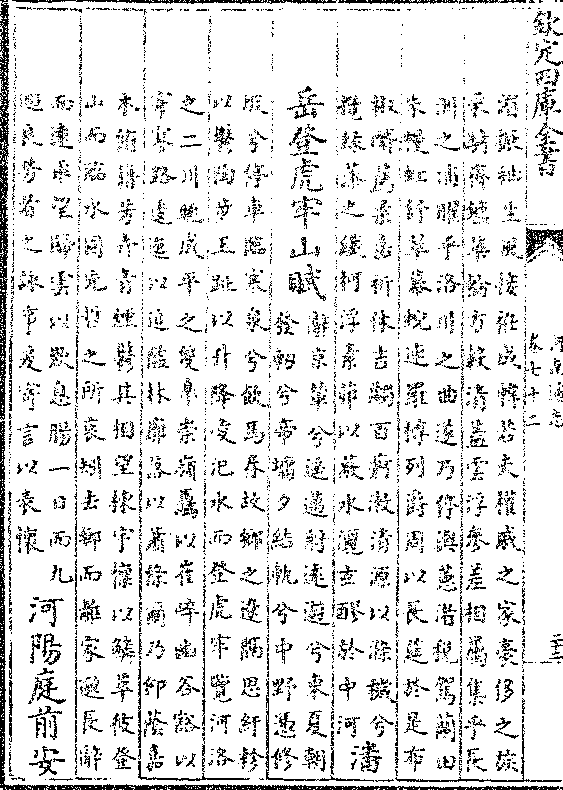 欽定四庫全書
河南通志
卷七十二
袖生風接衽成幃若夫權戚之家豪侈之族
采騎齊鑣華輪方轂清蓋雲浮參差相屬集乎長
洲之浦曜乎洛川之曲遂乃停輿蕙渚稅駕蘭田
朱幔虹舒翠幕蜺連羅樽列爵周以長筵於是布
椒醑薦柔嘉祈休吉蠲百痾漱清源以滌穢兮
攬綠藻之纖柯浮素以蔽水灑玄醪於中河
潘
岳登虎牢山賦
辭京輦兮遥邁將遠遊兮東夏朝
發軔兮帝墉夕結軌兮中野憑修
阪兮停車臨寒泉兮飲馬眷故鄉之遼隔思紆軫
以鬱陶步玉趾以升降凌氾水而登虎牢覽河洛
之二川眺成平之雙皋崇嶺驫以崔崒幽谷豁以
窙寥路逶迤以迫隘林廓落以蕭條爾乃仰蔭嘉
木俯藉芳卉青煙鬱其相望棟宇懍以鱗萃彼登
山而臨水固先哲之所哀矧去鄉而離家邈長辭
而遠乖望歸雲以歎息腸一日而九
迴良勞者之詠事爰寄言以表懷
河陽庭前安